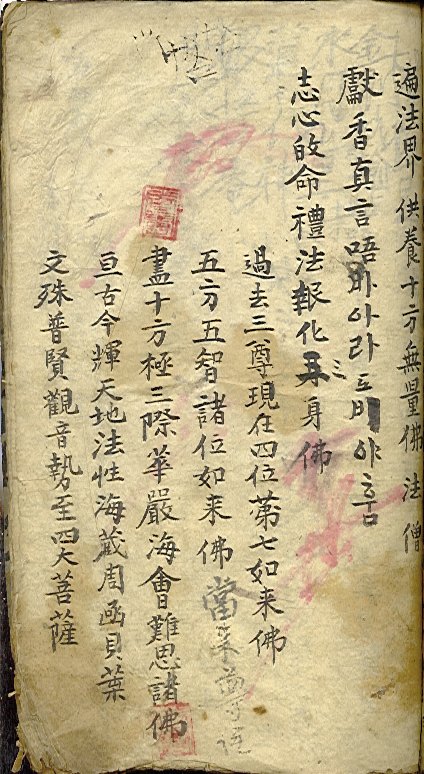 遍法界 供養十方無量佛法僧
獻香真言唵바아라도비야훔
志心皈命禮法報化三身佛
過去三尊現在四位第七如来佛
五方五智諸位如来佛 當来尊
盡十方極三際華嚴海會難思諸佛
亘古今輝天地法性海藏周函貝葉
文殊普賢觀音勢至四大菩薩